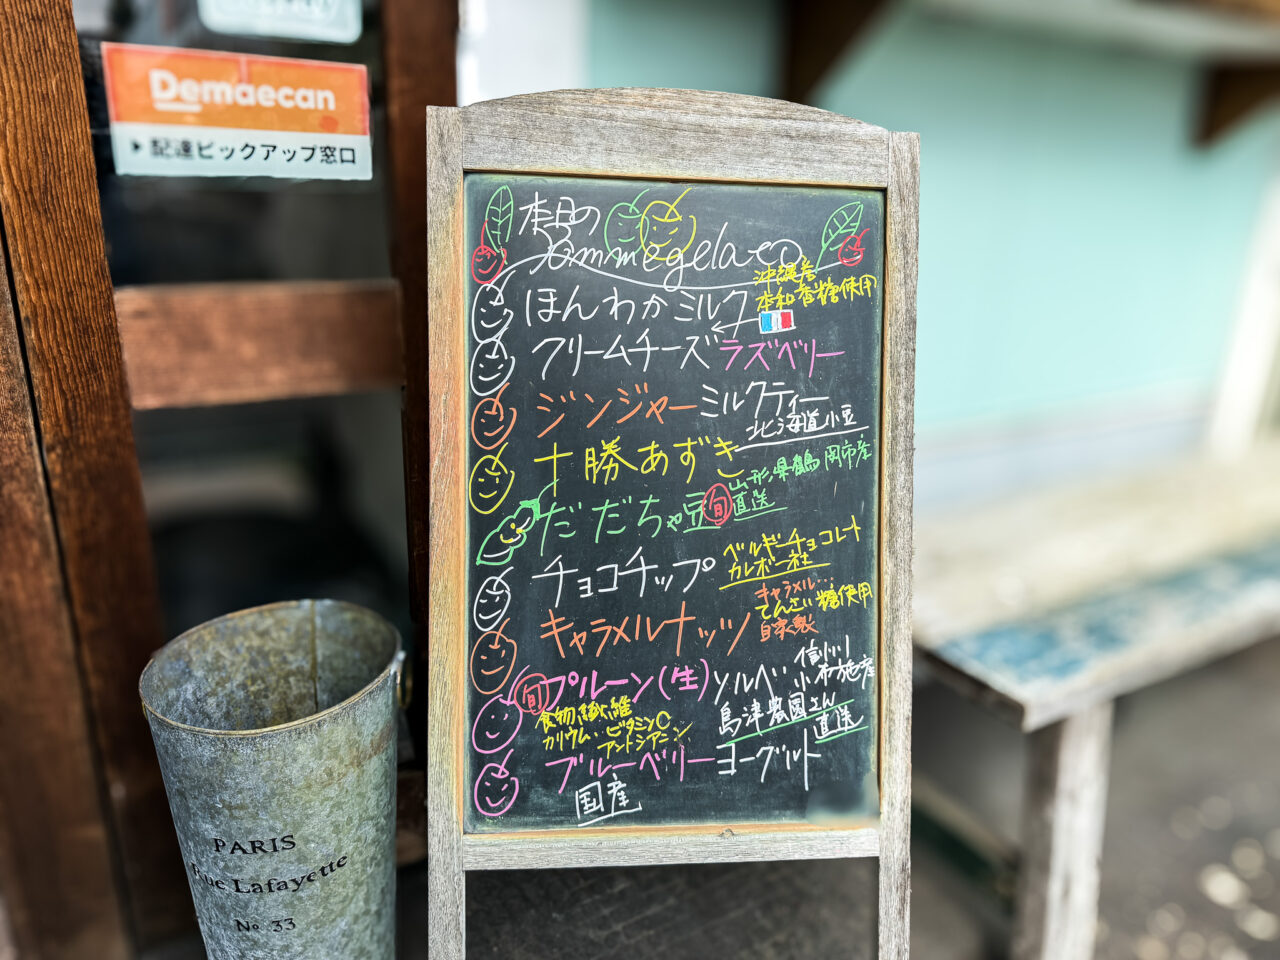 Demaecan
▶配達ピックアップ窓口
本日の
Pommegela-co
沖縄産
本和香糖使用
ほんわかミルク
クリームチーズラズベリー
ジンジャーミルクティー
北海道小豆
十勝あずき
山形県鶴岡市産
だだちゃ豆 旬 直送
チョコチップ
ベルギーチョコレート
カレボー社
キャラメル…
てんさい糖使用
自家製
キャラメルナッツ
信州小布施産
旬 プルーン(生)ソルベ
島津農園さん
直送
食物繊維
カリウム・ビタミンC
アントシアニン
ブルーベリーヨーグルト
国産
PARIS
Rue Lafayette
No 33